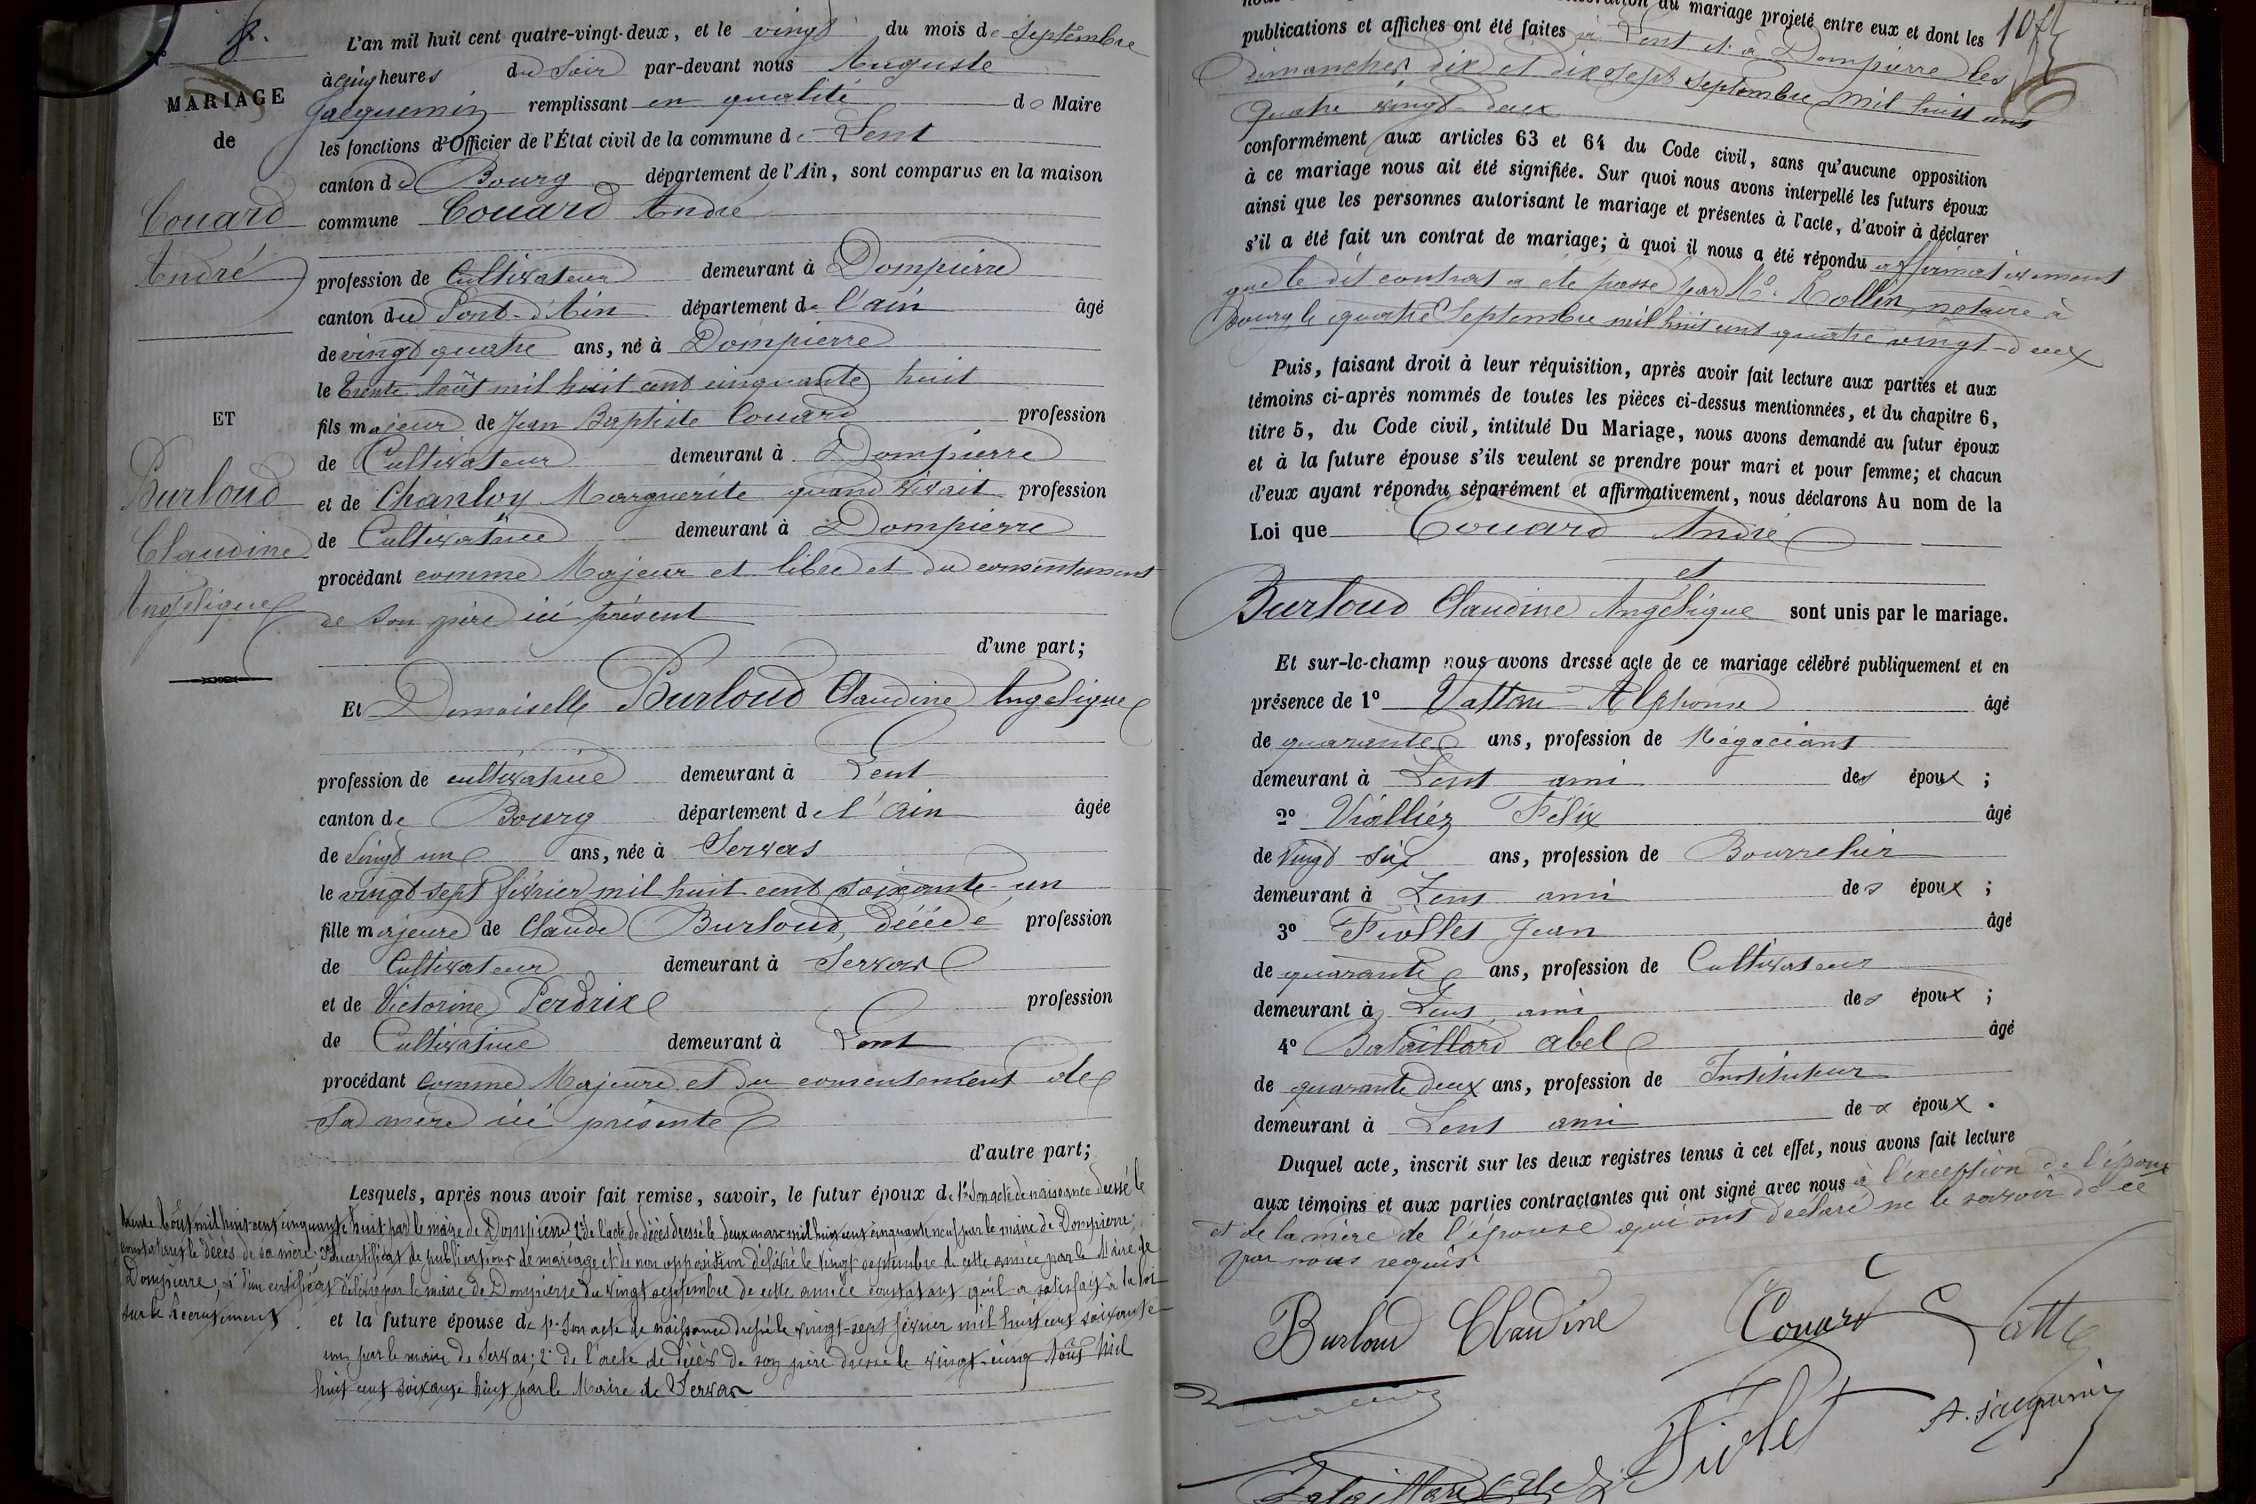 8.
MARIAGE
de
Couard
André
ET
Burloud
Claudine
Angélique
L'an mil huit cent quatre-vingt-deux, et le vingt du mois de Septembre
à cinq heures du Soir par-devant nous Auguste
Jacquemin remplissant en qualité de Maire
les fonctions d'Officier de l'État civil de la commune de Lent
canton de Bourg département de l'Ain, sont comparus en la maison
commune Couard André
profession de Cultivateur demeurant à Dompierre
canton du Pont-d'Ain département de l'ain âgé
de vingt quatre ans, né à Dompierre
le trente Août mil huit cent cinquante huit
fils majeur de Jean Baptiste Couard profession
de Cultivateur demeurant à Dompierre
et de Chanloy Marguerite quand vivait profession
de Cultivatrice demeurant à Dompierre
procédant comme Majeur et libre et du consentement
de son père ici présent
d'une part;
Et Demoiselle Burloud Claudine Angélique
profession de cultivatrice demeurant à Lent
canton de Bourg département de l'Ain âgée
de vingt un ans, née à Servas
le vingt-sept février mil huit cent soixante-un
fille majeure de Claude Burloud, décédé profession
de Cultivateur demeurant à Servas
et de Victorine Perdrix profession
de Cultivatrice demeurant à Lent
procédant comme Majeure et du consentement de
Sa mère ici présente
d'autre part;
Lesquels, après nous avoir fait remise, savoir, le futur époux de 1° Son acte de naissance dressé le
trente Août mil huit cent cinquante huit par le maire de Dompierre 2° de l'acte de décès dressé le deux mars mil huit cent cinquante neuf par le maire de Dompierre,
constatant le décès de sa mère. 3° du certificat de publications de mariage et de non opposition délivré le vingt septembre de cette année par le Maire de
Dompierre; 4° d'un certificat délivré par le maire de Dompierre du vingt septembre de cette année constatant qu'il a satisfait à la loi
sur le recrutement.
et la future épouse de 1° Son acte de naissance dressé le vingt-sept février mil huit cent soixante-
un par le maire de Servas; 2° de l'acte de décès de son père dressé le vingt-cinq Août Mil
huit cent soixante huit par le Maire de Servas
du mariage projeté entre eux et dont les
publications et affiches ont été faites à Lent et à Dompierre les
dimanches dix et dix sept septembre mil huit cent
Quatre vingt-deux
conformément aux articles 63 et 64 du Code civil, sans qu'aucune opposition
à ce mariage nous ait été signifiée. Sur quoi nous avons interpellé les futurs époux
ainsi que les personnes autorisant le mariage et présentes à l'acte, d'avoir à déclarer
s'il a été fait un contrat de mariage; à quoi il nous a été répondu affirmativement
que le dit contrat a été passé par Me. Rollin, notaire à
Bourg le quatre Septembre mil huit cent quatre vingt-deux
Puis, faisant droit à leur réquisition, après avoir fait lecture aux parties et aux
témoins ci-après nommés de toutes les pièces ci-dessus mentionnées, et du chapitre 6,
titre 5, du Code civil, intitulé Du Mariage, nous avons demandé au futur époux
et à la future épouse s'ils veulent se prendre pour mari et pour femme; et chacun
d'eux ayant répondu séparément et affirmativement, nous déclarons Au nom de la
Loi que Couard André
et
Burloud Claudine Angélique sont unis par le mariage.
Et sur-le-champ nous avons dressé acte de ce mariage célébré publiquement et en
présence de 1° Alphonse âgé
de quarante ans, profession de Négociant
demeurant à Lent ami des époux ;
2° Vialliéz Félix âgé
de vingt six ans, profession de Bourrelier
demeurant à Lent ami des époux ;
3° Fiollet Jean âgé
de quarante ans, profession de Cultivateur
demeurant à Lent ami des époux ;
4° Bataillard abel âgé
de quarante deux ans, profession de Instituteur
demeurant à Lent ami des époux.
Duquel acte, inscrit sur les deux registres tenus à cet effet, nous avons fait lecture
aux témoins et aux parties contractantes qui ont signé avec nous à l'exception de l'époux
et de la mère de l'épouse qui ont déclaré ne le savoir de ce
par nous requis
Burloud Claudine Couard
Fiolet A. Jacquemin
Bataillard